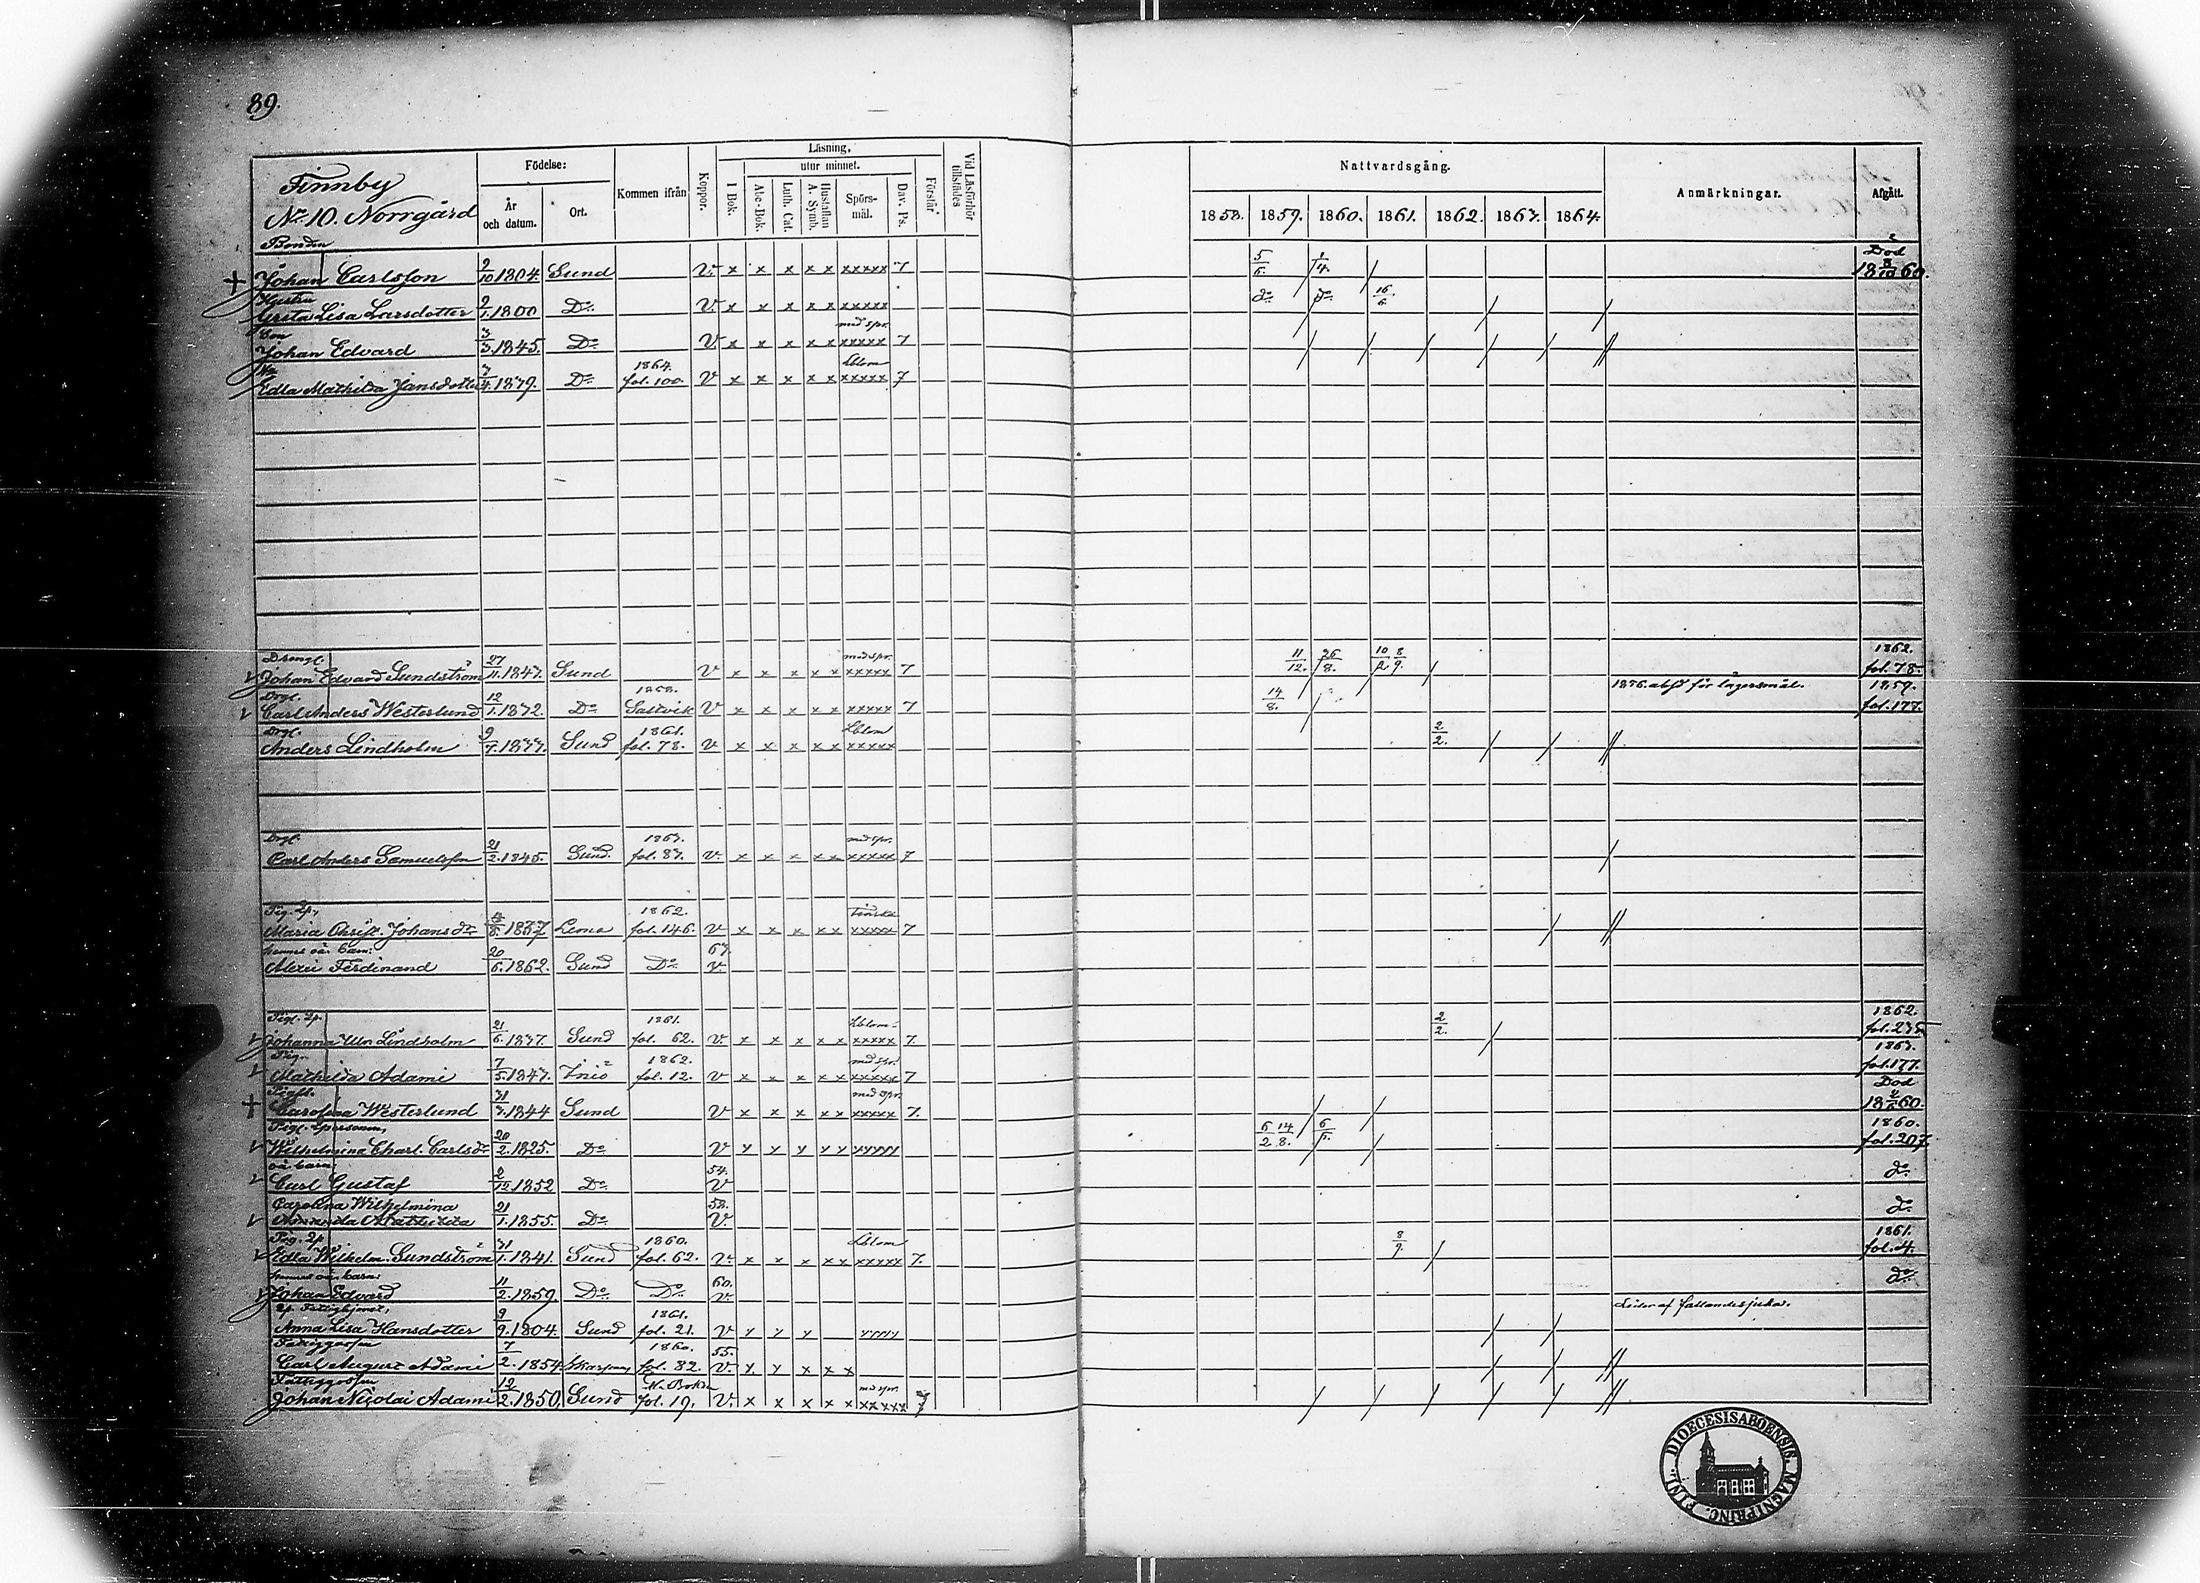 89.
Finnby
No 10. Norrgård
Födelse:
År och datum.
Ort.
Kommen ifrån
Koppor.
Läsning,
I Bok.
utur minnet.
Abc-Bok.
Luth. Cat.
Hustaflan A. Symb.
Spörs-mål.
Dav. Ps.
Förstår
Vid Läsförhör tillstädes
Nattvardsgång.
1858. 1859. 1860. 1861. 1862. 1863. 1864.
Anmärkningar.
Afgått.
Bonden
Johan Carlsson 2/10 1804. Sund V. x x x x x xxxxx 7 5/6. 1/4. Död
Hustru
Greta Lisa Larsdotter 2/1. 1800 Do V. x x x x x xxxxx do do 16/6.
Son med spr.
Johan Edvard 3/3. 1845. Do V x x x x x xxxxx 7
1864. Lblom
Edla Mathilda Jansdotter 1839. Do fol. 100. V x x x x x xxxxx 7
Drengl. med spr. 1862.
Johan Edvard Sundström 27/11. 1843. Sund V x x x x x xxxxx 7 11/12. 26/8. fol. 78.
Drgl. 1858. 1856. abs för lägersmål. 1859.
Carl Anders Westerlund 12/1. 1832. Do Saltvik V x x x x x xxxxx 7 14/8. fol. 177.
Drgl. 1861. Lblom
Anders Lindholm Sund fol. 78. V x x x x x xxxxx 2/2.
Drgl. 1863. med spr.
Carl Anders Samuelsson 21/2. 1845. Sund. fol. 83. V. x x x x x xxxxx 7
Pig. 2p. 1862.
Maria Christ. Johansdr Lemo fol. 146. V x x x x x xxxxx 7
hennes oä. barn: 63.
Alexii Ferdinand 20/6. 1862. Sund Do V.
Pigl. 2p. 1861. Lblom 1862.
Johanna Ulr. Lindholm 21/6. 1837. Sund fol. 62. V. x x x x x xxxxx 7. 2/2. fol. 235
Pig. 1862. med spr. 1863.
Mathilda Adami 7/5. 1843. Iniö fol. 12. V x x x x x xxxxx 7 fol. 177.
med spr. Död
Carolina Westerlund 1844 Sund V x x x x x xxxxx 7. 60.
Pigl. 1860.
Wilhelmina Charl. Carlsdr 20/2. 1825. Do V 14/8. fol. 207.
oä barn 54.
Carl Gustaf 2/10 1852 Do V do
Carolina Wilhelmina 58.
Amanda Mathilda 21/1. 1855. Do V. do
Pig. 2p 1860. Lblom 1861.
Edla Wilhelm. Sundström 31/1. 1841. Sund fol. 62. V. x x x x x xxxxx 7. 8/9. fol. 4.
hennes oä. barn: 60.
Johan Edvard 11/2. 1859 Do Do V. do
1861. Lider af fallandesjuka.
Anna Lisa Hansdotter 9/9. 1804. Sund fol. 21. V
Fattiggossen 1860. 55.
Carl August Adami 7/2. 1854 fol. 82. V. x x x x x
Fattiggossen med spr.
Johan Nicolai Adami 12/2. 1850. Sund fol. 19. V. x x x x x xxxxx 7
FINL. DIOECESIS ABOENSIS MAGNI PRINC.